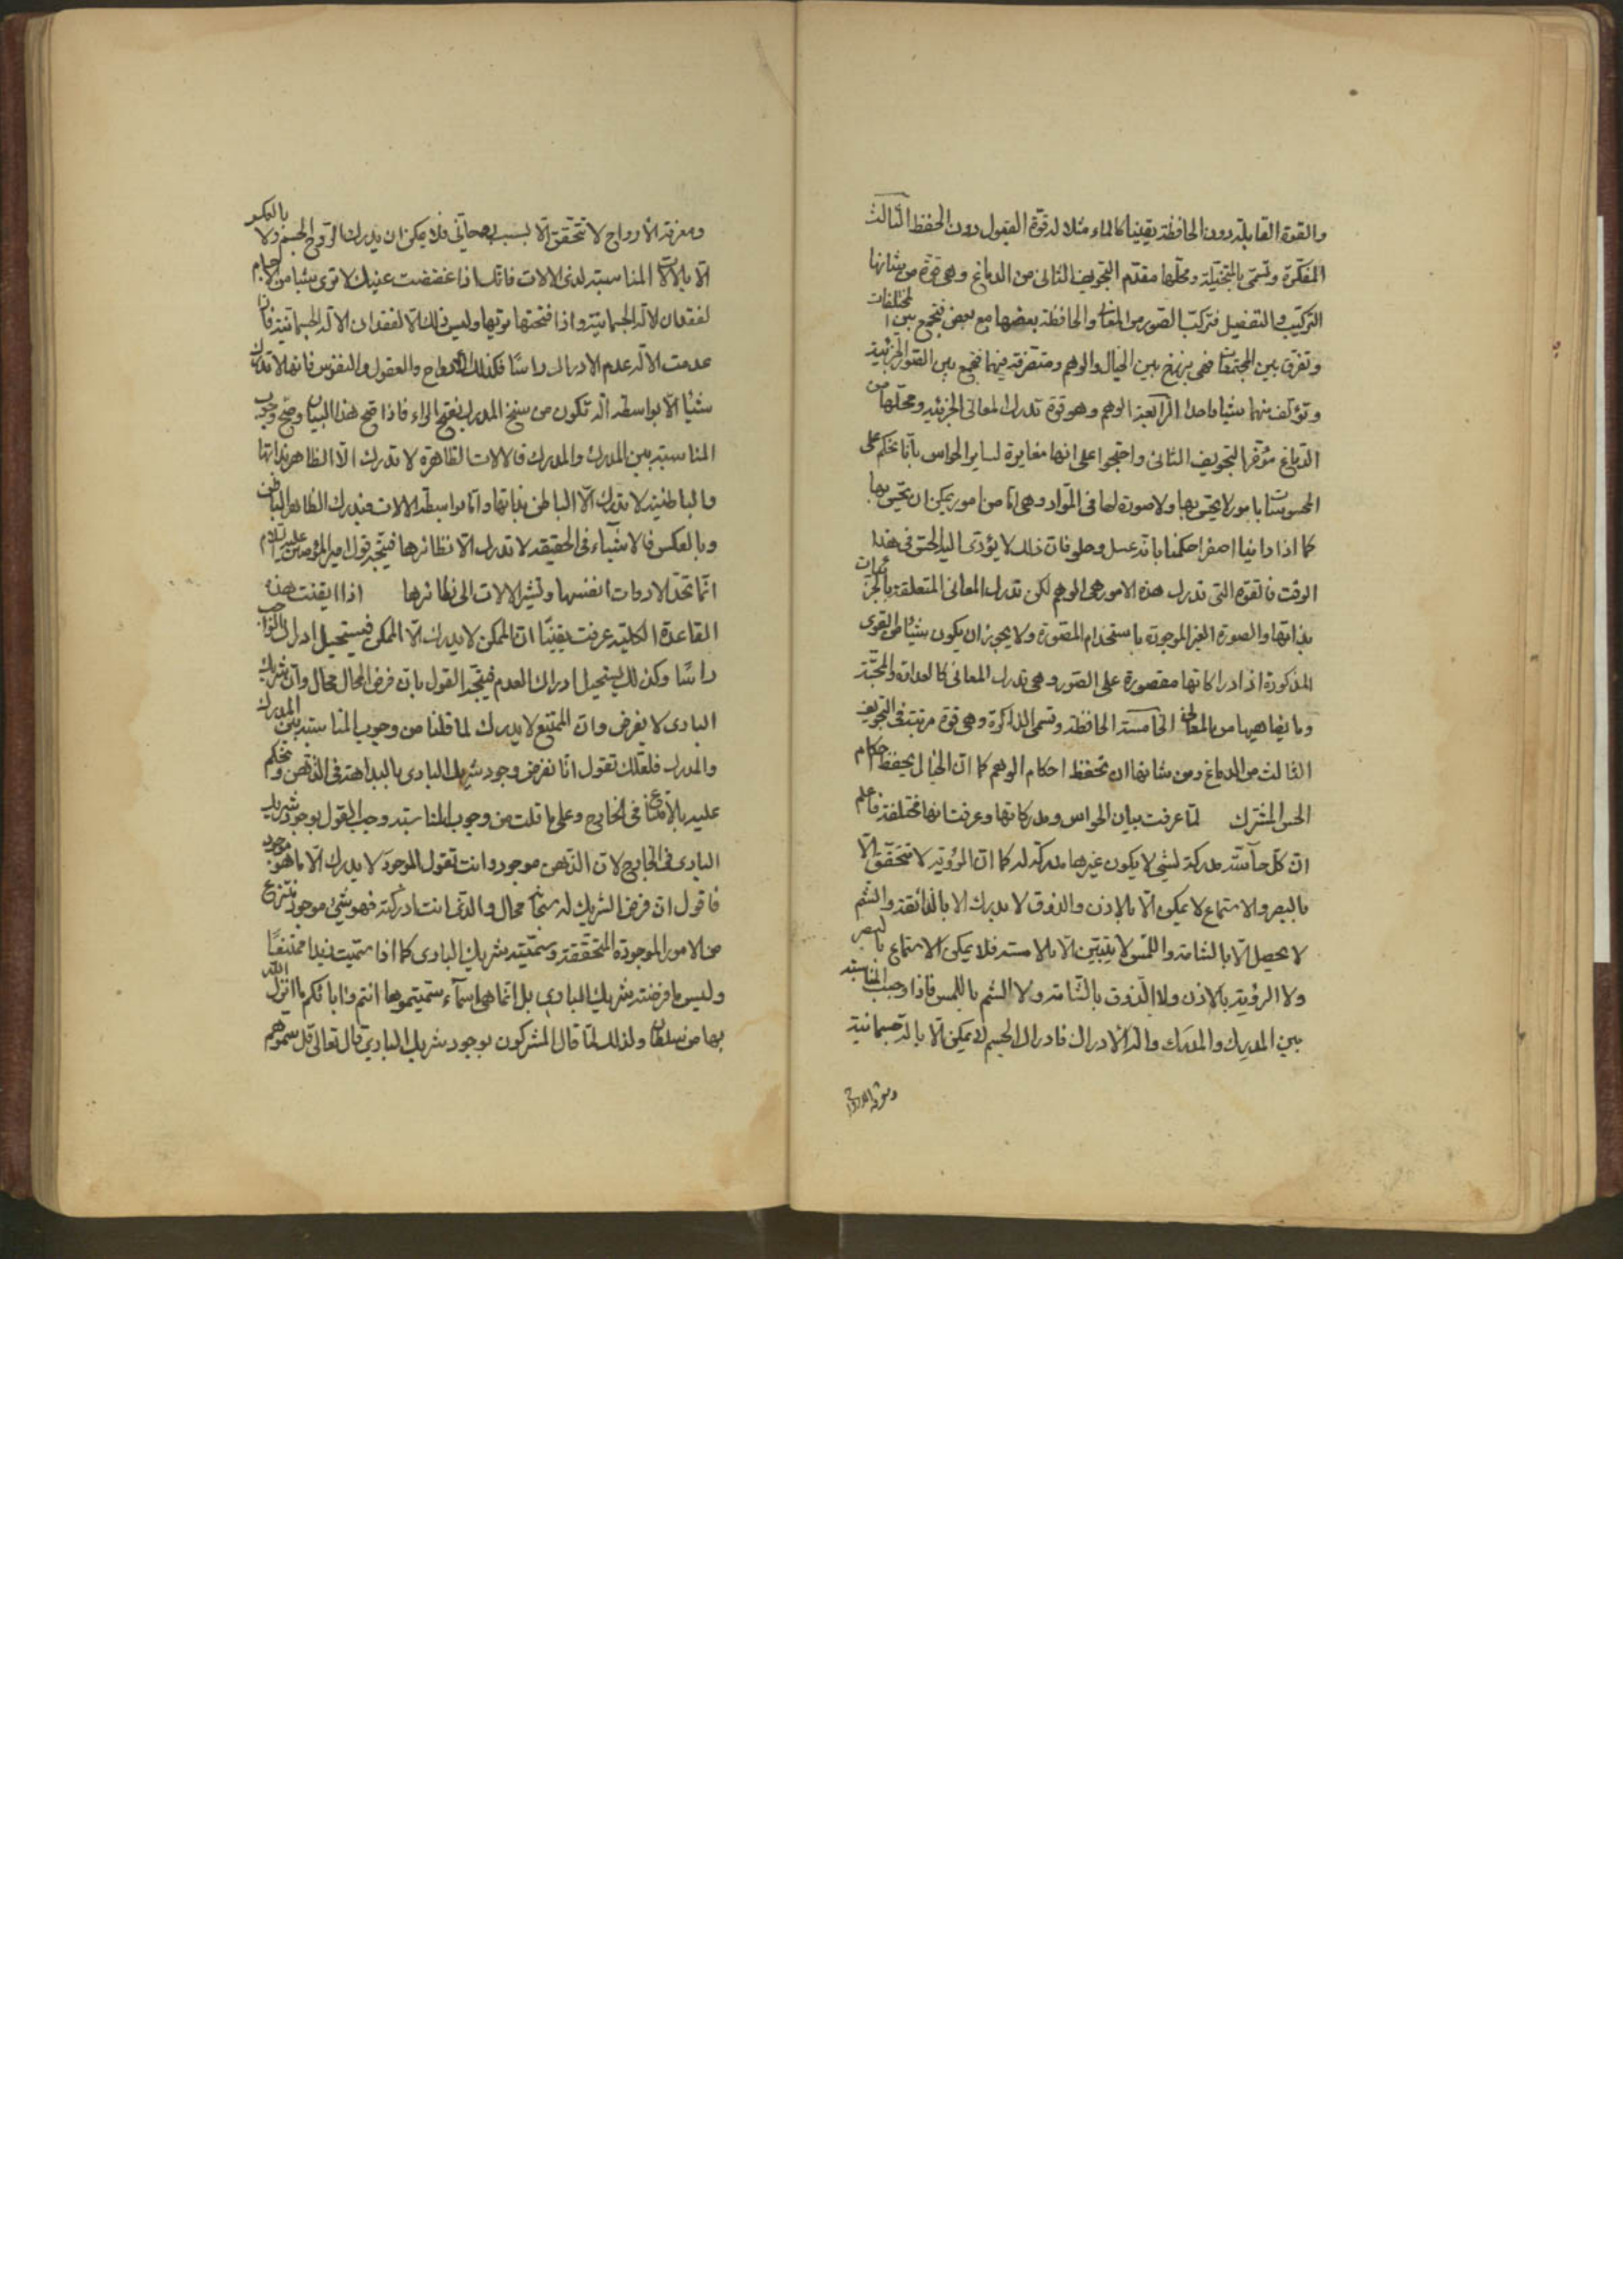 والقوة القابلة دون الحافظة يقينا كالماء مثلا له قوة القبول دون الحفظ الثالث
المفكرة وتسمى بالمتخيلة ومحلها مقدم التجويف الثانى من الدماغ وهى قوة من شانها
التركيب والتفصيل فتركب الصور من المعانى والحافظة بعضها مع بعض فتجمع بين المختلفات
وتفرق بين المجتمعات فهى برزخ بين الخيال والوهم ومتصرفة فيهما فتجمع بين الصور الجزئية
وتؤلف منهما شيئا واحدا الرابعة الوهم وهو قوة تدرك المعانى الجزئية ومحلها من
الدماغ مؤخر التجويف الثانى واحتجوا على انها مغايرة لساير الحواس بانا نحكم على
المحسوسات بامور لا يحس بها ولا صورة لها فى المواد وهى اما من امور يمكن ان يحس بها
كما اذا راينا اصفر احكمنا بانه عسل وحلو فان ذلك لا يؤدى اليه الحس فى هذا
الوقت فالقوة التى تدرك هذه الامور هى الوهم لكن تدرك المعانى المتعلقة بالجزئيات
بذاتها والصورة الغير الموجودة باستخدام المصورة ولا يجوز ان يكون شيئا من القوى
المذكورة اذ ادراكاتها مقصورة على الصور وهى تدرك المعانى كالعداوة والمحبة
وما يضاهيها من المعانى الخامسة الحافظة وتسمى الذاكرة وهى قوة مرتبة فى التجويف
الثالث من الدماغ ومن شانها ان تحفظ احكام الوهم كما ان الخيال يحفظ احكام
الحس المشترك لما عرفت بيان الحواس ومدركاتها وعرفت انها مختلفة فاعلم
ان كل حاسة مدركة لشئ لا يكون غيرها مدركة له كما ان الرؤية لا تتحقق الا
بالبصر والاستماع لا يمكن الا بالاذن والذوق لا يدرك الا بالذائقة والشم
لا يحصل الا بالشامة واللمس لا يتبين الا بالامسة فلا يمكن الاستماع بالبصر
ولا الرؤية بالاذن ولا الذوق بالشامة ولا الشم باللمس فاذا وجب المناسبة
بين المدرِك والمدرَك والة الادراك فادراك الجسم لا يمكن الا بالة جسمانية
ومعرفة الارواح
ومعرفة الارواح لا تتحقق الا بسبب روحانى فلا يمكن ان يدرك الروح الجسم ولا بالعكس
الا بالالات المناسبة لذى الالات فانك اذا غضضت عينيك لا ترى شيئا من الاجسام
لفقدان الالة الجسمانية واذا فتحتها تريها وليس ذلك الا لفقدان الالة الجسمانية فان
عدمت الالة عدم الادراك راسًا فكذلك الارواح والعقول والنفوس فانها لا تدرك
شيئا الا بواسطة الة تكون من سنخ المدرك بفتح الراء فاذا صح هذا البيان وضح وجوب
المناسبة بين المدرك والمدرك فالالات الظاهرة لا تدرك الا الظاهر بذاتها
والباطنية لا تدرك الا الباطن بذاتها واما بواسطة الالات فيدرك الظاهر الباطن
وبالعكس فالاشياء فى الحقيقة لا تدرك الا نظائرها فيتجه قول امير المؤمنين عليه السلام
انما تحد الادوات انفسها وتشير الالات الى نظائرها اذا ايقنت هذه
القاعدة الكلية عرفت يقينًا ان الممكن لا يدرك الا الممكن فيستحيل ادراك الواجب
راسًا وكذلك يستحيل ادراك العدم فيتجه القول بان فرض المحال محال وان شريك
البارى لا يفرض وان الممتنع لا يدرك لما قلنا من وجوب المناسبة بين المدرك
والمدرك فلعلك تقول انا نفرض وجود شريك البارى بالبداهة فى الذهن ونحكم
عليه بالامتناع فى الخارج وعلى ما قلت من وجوب المناسبة وجب القول بوجود شريك
البارى فى الخارج لان الذهن موجود وانت تقول الموجود لا يدرك الا ما هو موجود
فاقول ان فرض الشريك له سبحانه محال والذى انت ادركته فهو شئ موجود تنتزع
من الامور الموجودة المتحققة وسميته شريك البارى كما اذا سميت زيدا
وليس ما فرضته شريك البارى بل انما هى اسماء سميتموها انتم واباؤكم ما انزل الله
بها من سلطان ولذلك لما قال المشركون بوجود شريك البارى قال تعالى قل سموهم